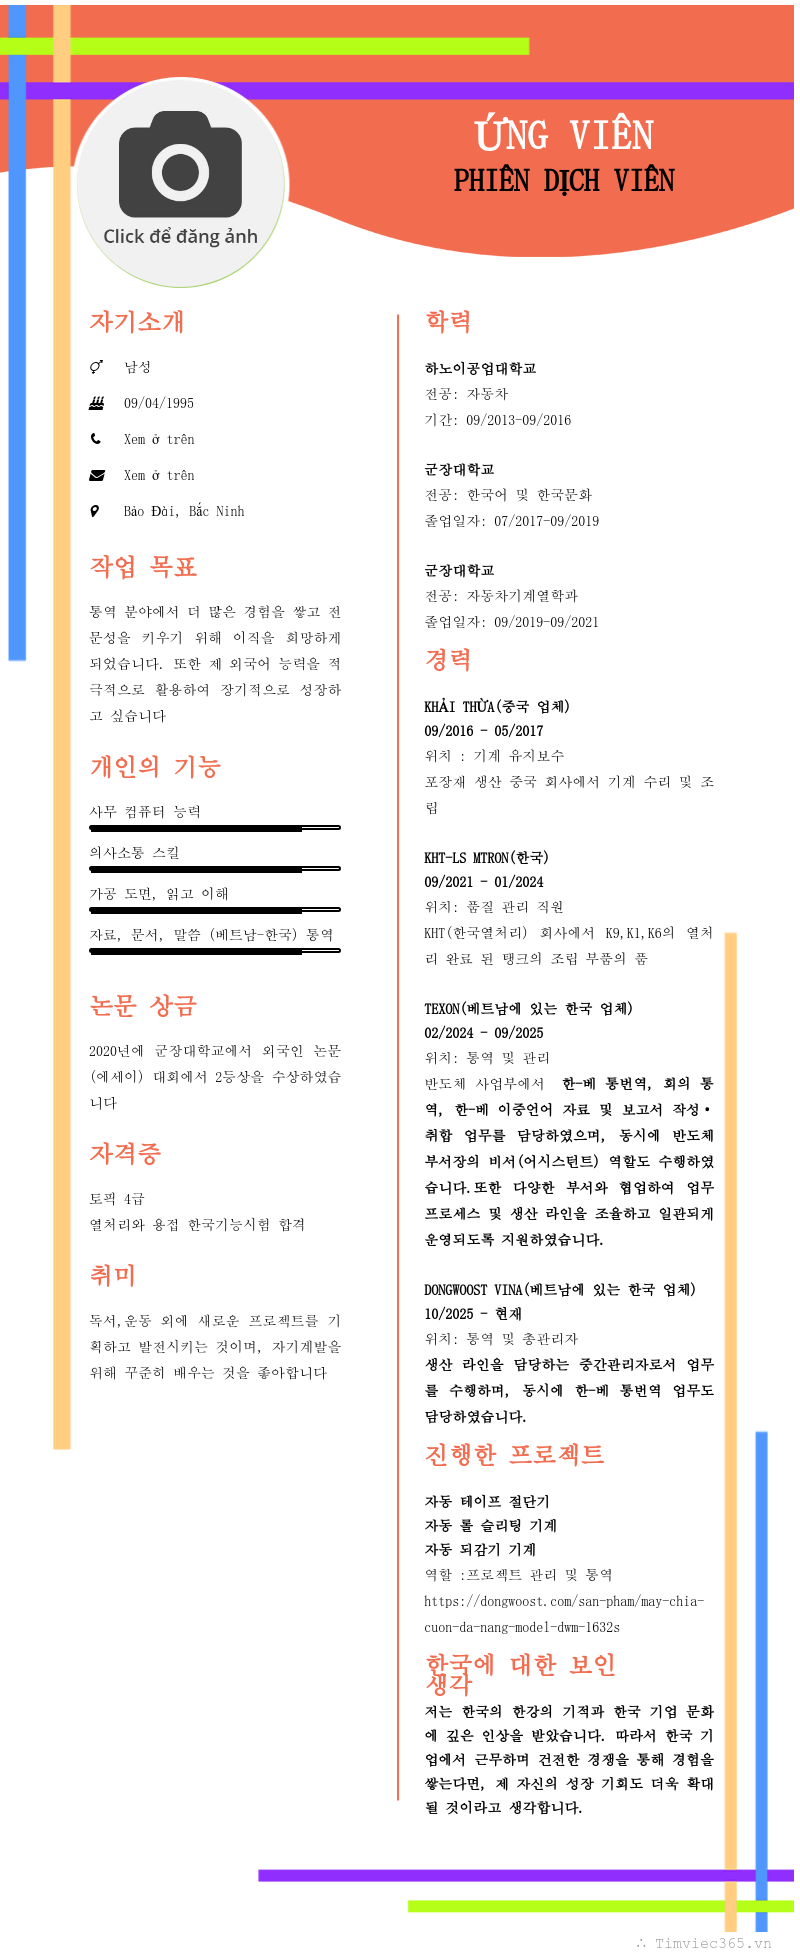 ỨNG VIÊN
PHIÊN DỊCH VIÊN
Click để đăng ảnh
자기소개
남성
09/04/1995
Xem ở trên
Xem ở trên
Bảo Đài, Bắc Ninh
작업 목표
통역 분야에서 더 많은 경험을 쌓고 전
문성을 키우기 위해 이직을 희망하게
되었습니다. 또한 제 외국어 능력을 적
극적으로 활용하여 장기적으로 성장하
고 싶습니다
개인의 기능
사무 컴퓨터 능력
의사소통 스킬
가공 도면, 읽고 이해
자료, 문서, 말씀 (베트남-한국) 통역
논문 상금
2020년에 군장대학교에서 외국인 논문
(에세이) 대회에서 2등상을 수상하였습
니다
자격증
토픽 4급
열처리와 용접 한국기능시험 합격
취미
독서,운동 외에 새로운 프로젝트를 기
획하고 발전시키는 것이며, 자기계발을
위해 꾸준히 배우는 것을 좋아합니다
학력
하노이공업대학교
전공: 자동차
기간: 09/2013-09/2016
군장대학교
전공: 한국어 및 한국문화
졸업일자: 07/2017-09/2019
군장대학교
전공: 자동차기계열학과
졸업일자: 09/2019-09/2021
경력
KHẢI THỪA(중국 업체)
09/2016 - 05/2017
위치 : 기계 유지보수
포장재 생산 중국 회사에서 기계 수리 및 조
립
KHT-LS MTRON(한국)
09/2021 - 01/2024
위치: 품질 관리 직원
KHT(한국열처리) 회사에서 K9,K1,K6의 열처
리 완료 된 탱크의 조립 부품의 품
TEXON(베트남에 있는 한국 업체)
02/2024 - 09/2025
위치: 통역 및 관리
반도체 사업부에서 한-베 통번역, 회의 통
역, 한-베 이중언어 자료 및 보고서 작성·
취합 업무를 담당하였으며, 동시에 반도체
부서장의 비서(어시스턴트) 역할도 수행하였
습니다.또한 다양한 부서와 협업하여 업무
프로세스 및 생산 라인을 조율하고 일관되게
운영되도록 지원하였습니다.
DONGWOOST VINA(베트남에 있는 한국 업체)
10/2025 - 현재
위치: 통역 및 총관리자
생산 라인을 담당하는 중간관리자로서 업무
를 수행하며, 동시에 한-베 통번역 업무도
담당하였습니다.
진행한 프로젝트
자동 테이프 절단기
자동 롤 슬리팅 기계
자동 되감기 기계
역할 :프로젝트 관리 및 통역
https://dongwoost.com/san-pham/may-chia-
cuon-da-nang-model-dwm-1632s
한국에 대한 보인
생각
저는 한국의 한강의 기적과 한국 기업 문화
에 깊은 인상을 받았습니다. 따라서 한국 기
업에서 근무하며 건전한 경쟁을 통해 경험을
쌓는다면, 제 자신의 성장 기회도 더욱 확대
될 것이라고 생각합니다.
∴ Timviec365.vn